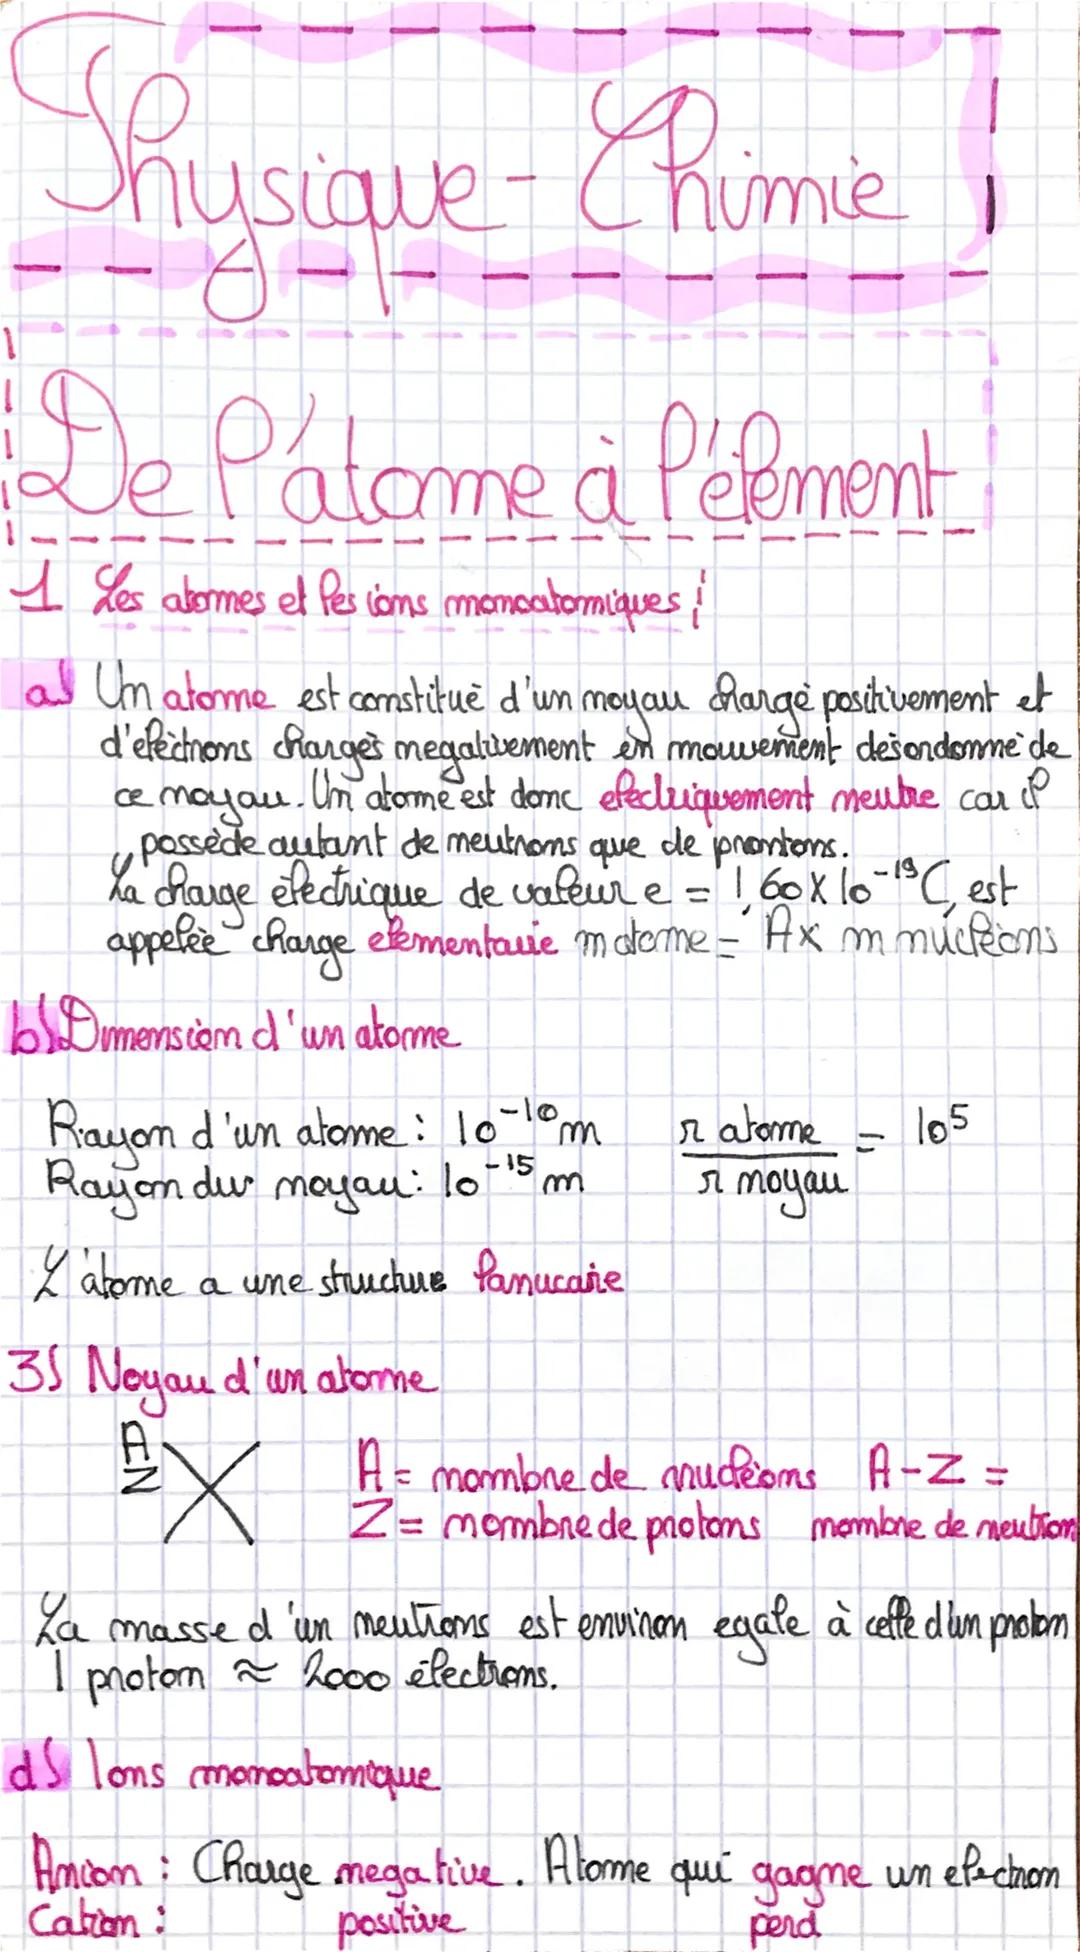 Physique-Chimie
De l'atome à l'élément
1 Les atomes et les ions monoatomiques :
a) Un atome est constitué d'un noyau chargé positivement et
d'électrons chargés negativement en mouvement desordonné de
ce noyau. Un atome est donc electriquement neutre car il
possède autant de neutrons que de prontons.
La charge électrique de valeur e = 1,60 X 10⁻¹⁹ C, est
appelée charge elementaire m atome = A x m nucléons
b) Dimension d'un atome
Rayon d'un atome : 10⁻¹⁰ m r atome / r noyau = 10⁵
Rayon du noyau : 10⁻¹⁵ m
L'atome a une structure lanucaire
3) Noyau d'un atome
A Z X A = nombre de nucléons A-Z =
Z = nombre de protons nombre de neutron
La masse d'un neutrons est environ egale à celle d'un proton
1 proton ≈ 2000 électrons.
d) Ions monoatomique
Anion : Charge negative. Atome qui gagne un electron
Cation : positive perd